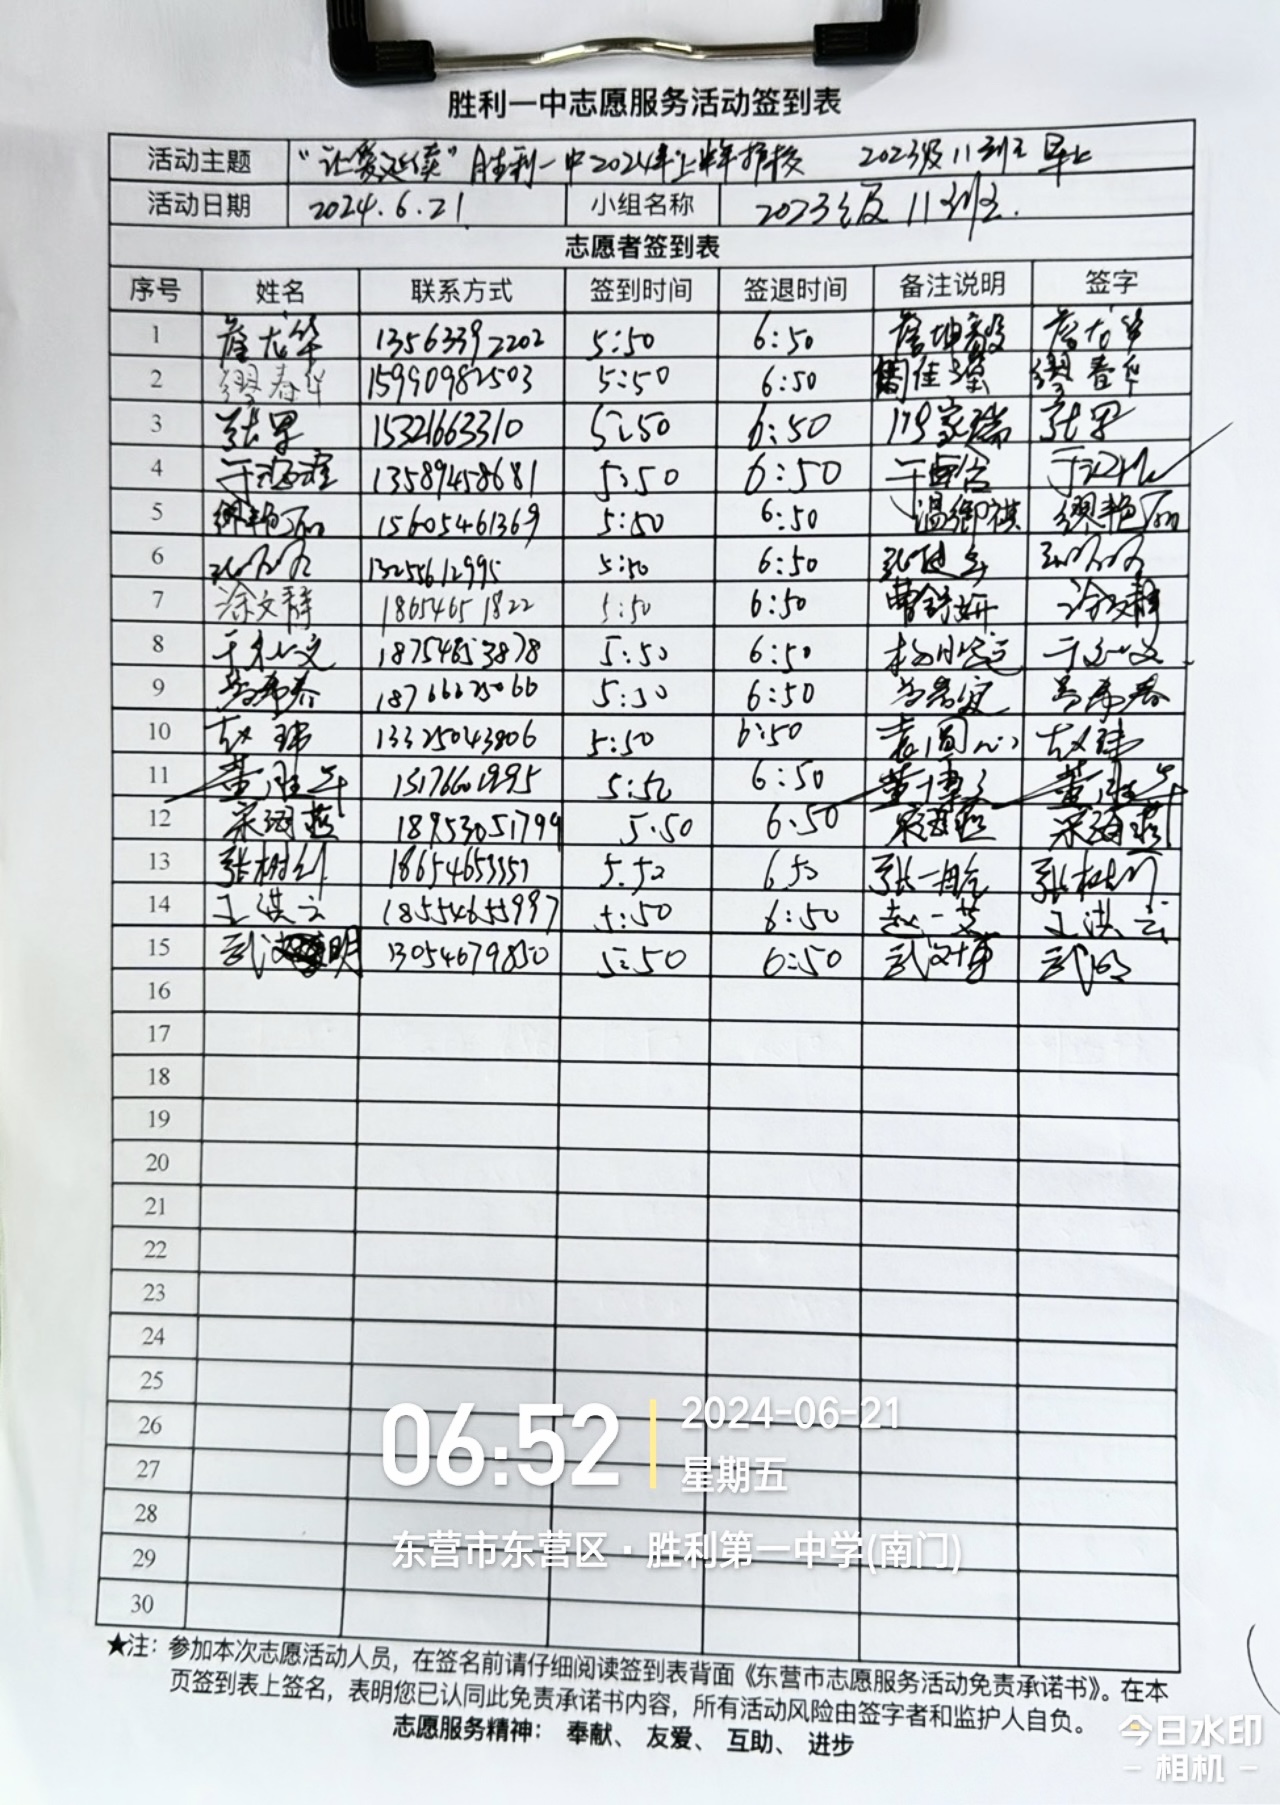 胜利一中志愿服务活动签到表
活动主题 "让爱延续"胜利一中2024年上半年护校 2023级11班 早上
活动日期 2024.6.21 小组名称 2023级11班.
志愿者签到表
序号 姓名 联系方式 签到时间 签退时间 备注说明 签字
1 詹龙华 13563392202 5:50 6:50 詹坤毅 詹龙华
2 缪春华 15990982503 5:50 6:50 周佳莹 缪春华
3 张军 15321663310 5:50 6:50 张军
4 13589458681 5:50 6:50
5 缪艳丽 15605461369 5:50 6:50 温御祺 缪艳丽
6 13255612995 5:50 6:50
7 涂文静 18654651822 5:50 6:50 曹舒妍 涂文静
8 18754853878 5:50 6:50
9 18766625066 5:50 6:50
10 赵玮 13325043806 5:50 6:50 袁圆心 赵玮
11 15176601995 5:50 6:50
12 宋海燕 18953051799 5:50 6:50 宋海燕
13 张树 18654653357 5:50 6:50 张一
14 王洪云 18554655997 5:50 6:50 赵一 王洪云
15 武明 13054679850 5:50 6:50 武文博 武明
16
17
18
19
20
21
22
23
24
25
26
27
28
29
30
06:52 2024-06-21
星期五
东营市东营区·胜利第一中学(南门)
★注：参加本次志愿活动人员，在签名前请仔细阅读签到表背面《东营市志愿服务活动免责承诺书》。在本
页签到表上签名，表明您已认同此免责承诺书内容，所有活动风险由签字者和监护人自负。
志愿服务精神：奉献、友爱、互助、进步
今日水印
相机